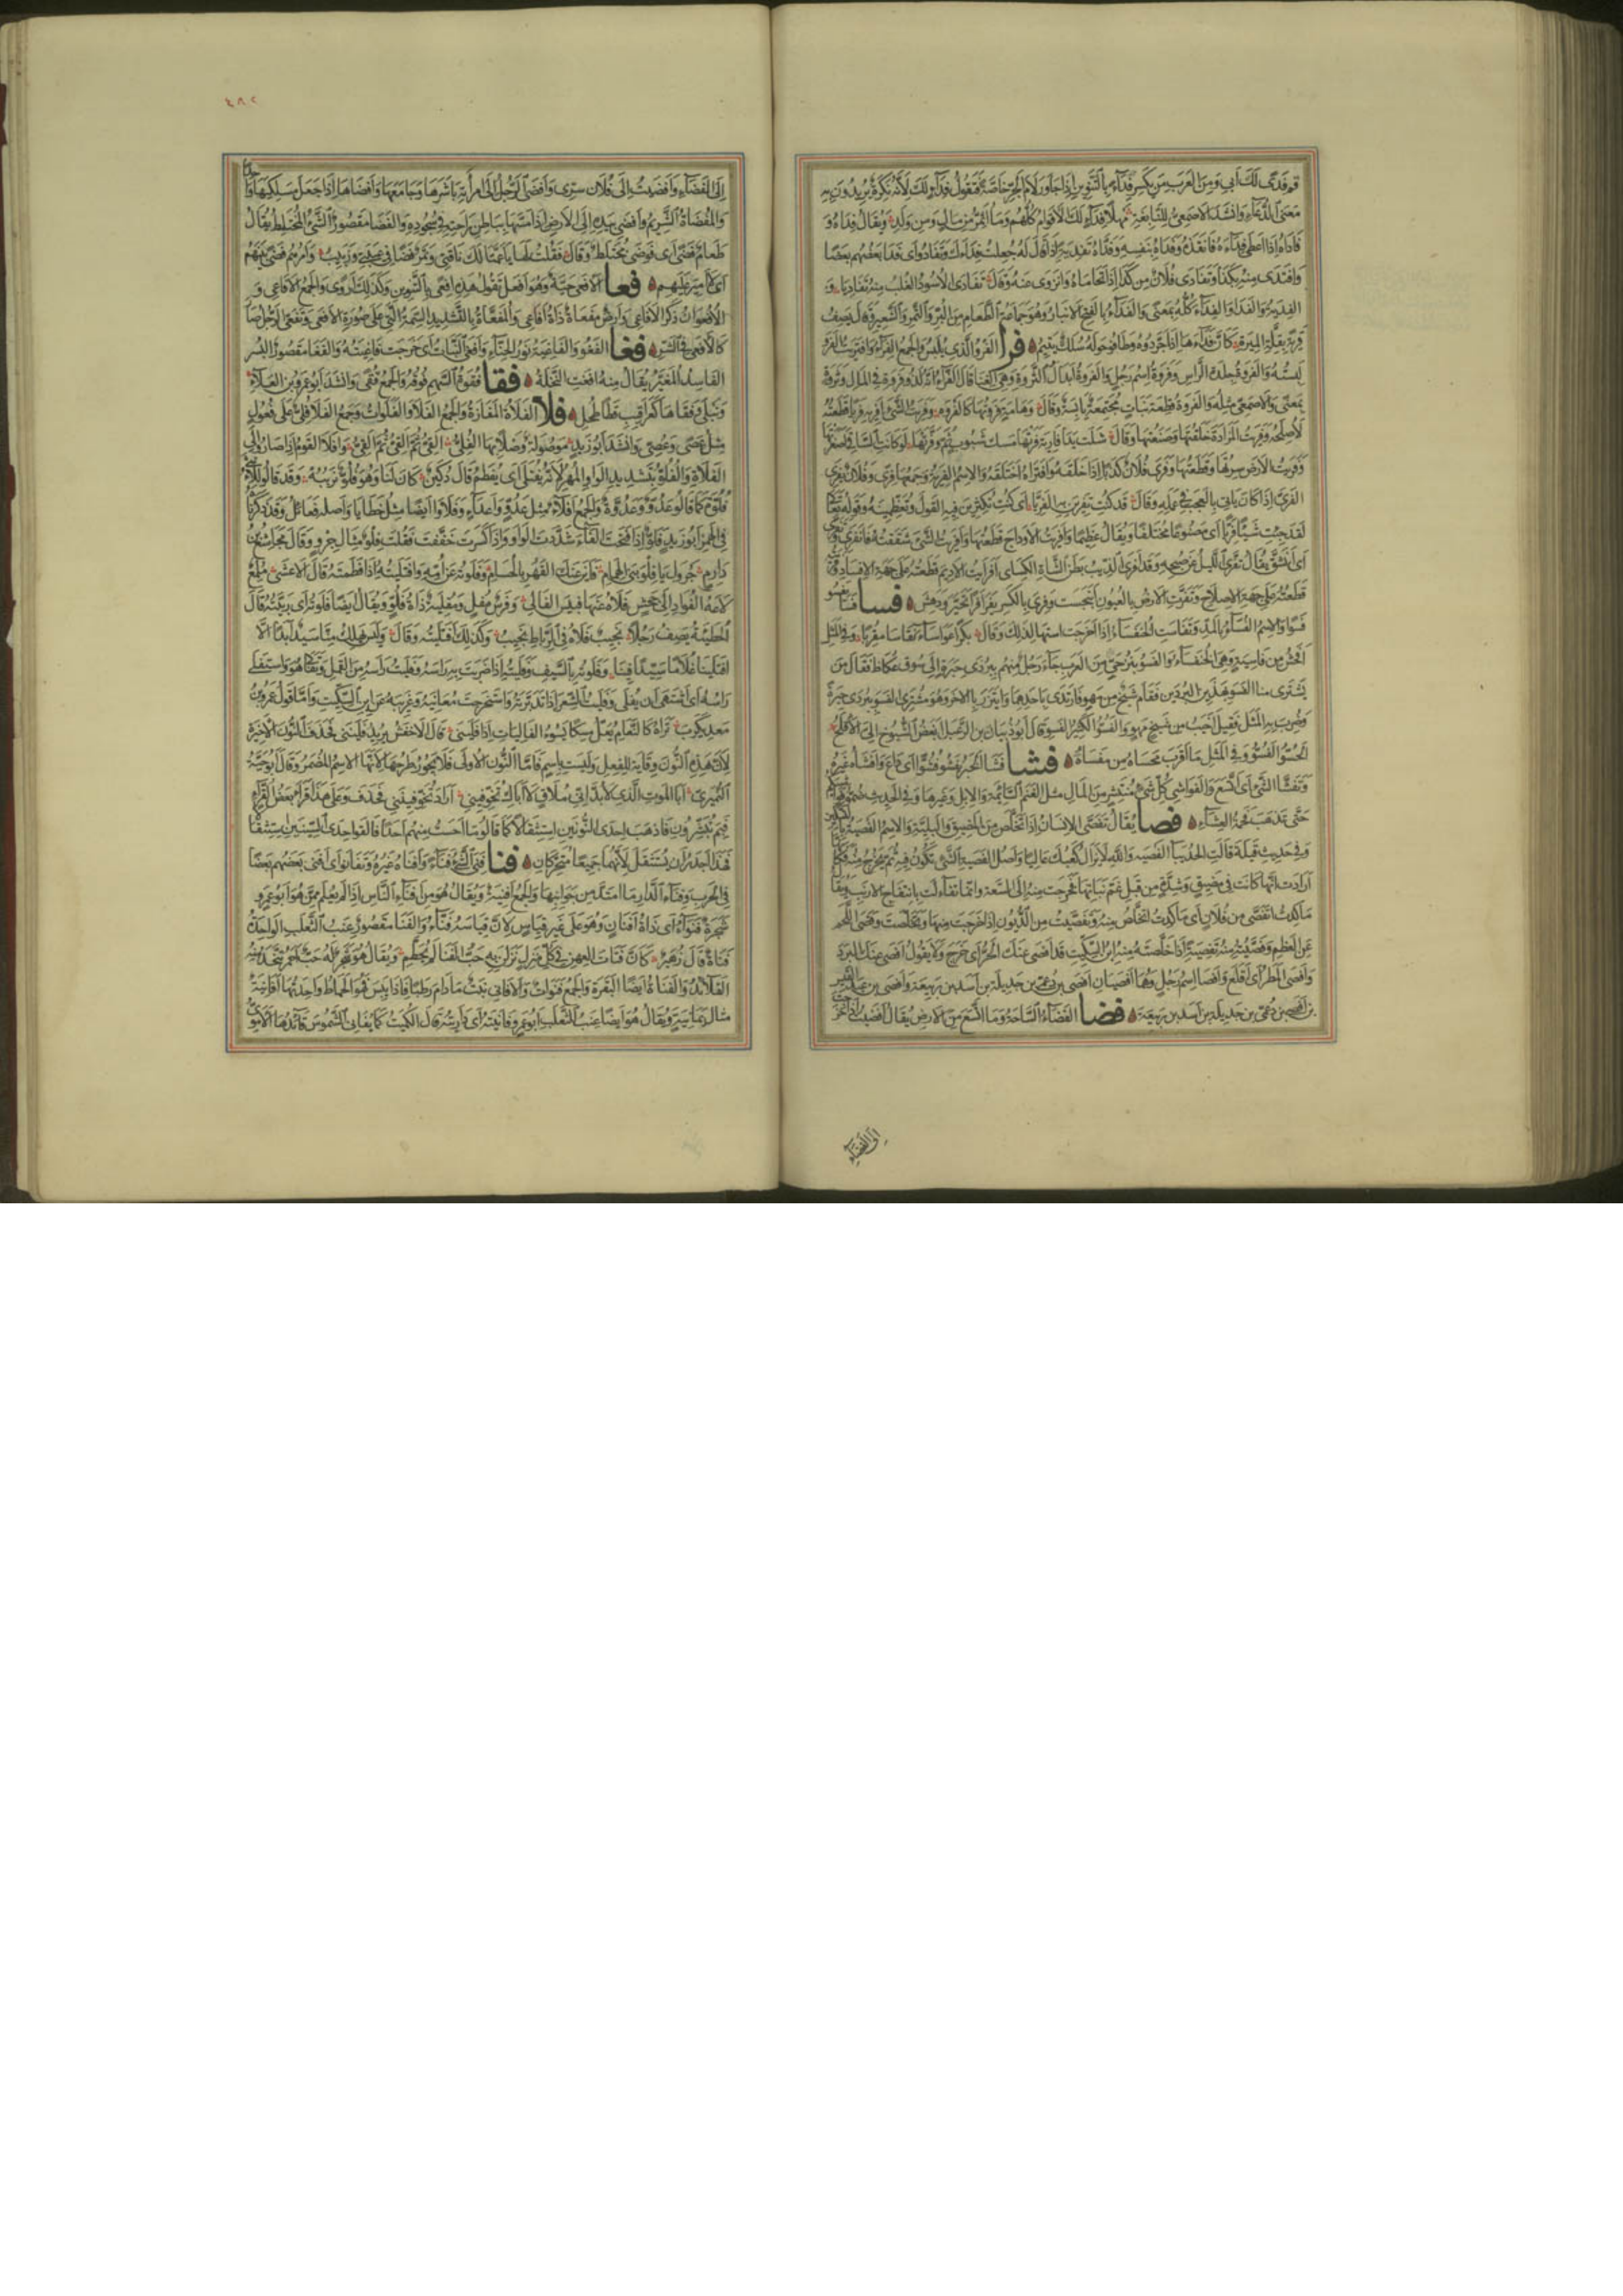 قم فدى لك أبي ومن العرب من يكسر فداء بالتنوين إذا جاور لام الجر خاصة فيقول فداء لك لأنه نكرة يريدون به
معنى الدعاء وأنشد الأصمعي للنابغة مهلا فداء لك الأقوام كلهم وما أثمر من مال ومن ولد ويقال فداه و
فاداه إذا أعطى فداءه فأنقذه وفداه بنفسه وفداه تفدية إذا قال له جعلت فداءك وتفادوا أي فدا بعضهم بعضا
وافتدى منه بكذا وتفادى فلان من كذا إذا تحاماه وانزوى عنه وقال تفادى الأسود الغلب منه تفاديا و
الفدية والفدا والفداء كله بمعنى والفداء بالفتح الأنبار وهو جماعة الطعام من البر والتمر والشعير وقال يصف
قرية بقلة الميرة كأن فداءها إذ جردوه وطافوا حوله سلك يتيم فرا الفرو الذي يلبس والجمع الفراء وافتريت الفرو
لبسته والفروة جلدة الرأس وفروة اسم رجل والفروة إبدال الثروة وهي الغنا قال الفراء إنه لذو فروة في المال وثروة
بمعنى والأصمعي مثله والفروة قطعة نبات مجتمعة يابسة وقال وهامة فروتها كالفروه وفريت الشيء أفريه فريا قطعته
لأصلحه وفريت المزادة خلقتها وصنعتها وقال شلت يدا فارية فرتها مسك شبوب ثم وفرتها لو كانت الساقي أصغرتها
وفريت الأرض سرتها وقطعتها وفرى فلان كذبا إذا خلقه وافتراه اختلقه والاسم الفرية وجمعها فرى وفلان يفري
الفري إذا كان يأتي بالعجب في عمله وقال قد كنت تفرين به الفريا أي كنت تكثرين فيه القول وتعظمينه وقوله تعالى
لقد جئت شيئا فريا أي مصنوعا مختلقا ويقال عظيما وأفريت الأوداج قطعتها وأفريت الشيء شققته فانفرى وتفرى
أي انشق يقال تفرى الليل عن صبحه وقد أفرى الذيب بطن الشاة الكسائي أفريت الأديم قطعته على جهة الإفساد وفريته
قطعته على جهة الإصلاح وتفرت الأرض بالعيون انبجست وفري بالكسر يفرى فرا تحير ودهش فسا فسا يفسو
فسوا والاسم الفساء بالمد وتفاست الخنفساء إذا أخرجت استها لذلك وقال بكرا عواساء تفاسا مقربا وفي المثل
أفحش من فاسية وهي الخنفساء والفسو نبز حي من العرب جاء رجل منهم ببردي حبرة إلى سوق عكاظ فقال من
يشتري منا الفسو بهذين البردين فقام شيخ من مهو فارتدى بأحدهما وائتزر بالآخر وهو مشتري الفسو ببردي حبرة
وضرب به المثل فقيل أخيب من شيخ مهو والفسو الكثير الفسو قال أبو ذبيان بن الرعبل أبغض الشيوخ إلي الأقلح
الحسو الفسو وفي المثل ما أقرب محساه من مفساه فشا فشا الخبر يفشو فشوا أي ذاع وأفشاه غيره
وتفشا الشيء أي اتسع والفواشي كل شيء منتشر من المال مثل الغنم السائمة والإبل وغيرها وفي الحديث ضموا فواشيكم
حتى تذهب فحمة العشاء فصا يقال تفصى الإنسان إذا تخلص من الضيق والبلية والاسم الفصية بالتسكين
وفي حديث قيلة قالت الحديباء الفصيه والله لا يزال كعبك عاليا وأصل الفصية الشيء تكون فيه ثم تخرج منه فكأنها
أرادت أنها كانت في مضيق وشدة من قبل عم بناتها فخرجت منه إلى السعة وإنما تفاءلت بانتفاج الأرنب ويقال
ما كدت أتفصى من فلان أي ما كدت أتخلص منه وتفصيت من الديون إذا خرجت منها وتخلصت وفصى اللحم
عن العظم وفصيته منه تفصية إذا خلصته منه ابن السكيت قد أفصى عنك الحر أي خرج ولا يقول أفصى عنك البرد
وأفصى المطر أي أقلع وأفصى اسم رجل وهما أفصيان أفصى بن دعمي بن جديلة بن أسد بن ربيعة وأفصى بن عبد القيس
بن أفصى بن دعمي بن جديلة بن أسد بن ربيعة فضا الفضاء الساحة وما اتسع من الأرض يقال أفضيت إذا خرجت
إلى الفضاء
٤٨٢
إلى الفضاء وأفضيت إلى فلان سري وأفضى الرجل إلى امرأته باشرها وجامعها وأفضاها إذا جعل مسلكيها واحدا
والمفضاة الشريم وأفضى بيده إلى الأرض إذا مسها بباطن راحته في سجوده والفضا مقصور الشيء المختلط يقال
طعام فضى أي فوضى مختلط وقال فقلت لها يا عمتا لك ناقتي وتمر فضا في عيبتي وزبيب وأمرهم فضى بينهم
أي لا أمير عليهم فعا الأفعى حية وهو أفعل تقول هذه أفعى بالتنوين وكذلك أروى والجمع الأفاعي و
الأفعوان ذكر الأفاعي وأرض مفعاة ذاة أفاعي والمفعاة بالتشديد السمة التي على صورة الأفعى وتفعى الرجل صار
كالأفعى في الشر فغا الفغو والفاغية نور الحناء وأفغى النبات أي خرجت فاغيته والفغا مقصور البسر
الفاسد المغبر يقال منه أفغت النخلة فقا فقوة السهم فوقه والجمع فقى وأنشد أبو عمرو بن العلاء
ونبلي وفقاها كعراقيب قطا طحل فلا الفلاة المفازة والجمع الفلا والفلوات وجمع الفلا فلي على فعول
مثل عصى وعصي وأنشد أبو زيد موصولة وصلا بها الفلي القي ثم القي ثم القي وأفلا القوم إذا صاروا إلى
الفلاة والفلو بتشديد الواو المهر لأنه يفتلى أي يفطم قال دكين كان لنا وهو فلو نرببه وقد قالوا للأنثى
فلوة كما قالوا عدو وعدوة والجمع أفلاء مثل عدو وأعداء وفلاوا أيضا مثل خطايا وأصله فعائل وقد ذكرنا
في الهمز أبو زيد فلو إذا فتحت الفاء شددت الواو وإذا كسرت خففت فقلت فلو مثال جرو وقال مجاشع بن
دارم جرول يا فلو بني الهمام فأين عنك القهر بالحسام وفلوته عن أمه وافتليته إذا فطمته قال الأعشى ملمع
لاعة الفواد إلى جحش فلاه عنها فبئس الفالي وفرس مفل ومفلية ذاة فلو ويقال أيضا فلوته أي ربيته قال
الحطيئة يصف رجلا نجيب فلاه في الرباط نجيب وكذلك افتليته وقال وليس يهلك منا سيد أبدا إلا
افتلينا غلاما سيدا فينا وفلوته بالسيف وفليته إذا ضربت به راسه وفليت رأسه من القمل وتفالا هو واستفلى
راسه أي اشتهى أن يفلى وفليت الشعر إذا تدبرته واستخرجت معانيه وغريبه عن ابن السكيت وأما قول عمرو بن
معدي كرب تراه كالثغام يعل مسكا يسوء الفاليات إذا فليني قال الأخفش يريد فلينني فحذف النون الأخيرة
لأن هذه النون وقاية للفعل وليست باسم فأما النون الأولى فلا يجوز طرحها لأنها الاسم المضمر وقال أبو حية
النميري أبا الموت الذي لا بد أني ملاق لا أباك تخوفيني أراد تخوفينني فحذف وعلى هذا قرأ بعض القراء
فبم تبشرون فأذهب إحدى النونين استثقالا كما قالوا ما أحست منهم أحدا فألقوا إحدى السينين استثقالا
فهذا أجدر أن يستثقل لأنهما جميعا متحركان فنا فني الشيء فناء وأفناه غيره وتفانوا أي أفنى بعضهم بعضا
في الحرب وفناء الدار ما امتد من جوانبها والجمع أفنية ويقال هو من أفناء الناس إذا لم يعلم ممن هو أبو عمرو
شجرة فنواء أي ذاة أفنان وهو على غير قياس لأن قياسه فناء والفنا مقصور عنب الثعلب الواحدة
فناة قال زهير كأن فتات العهن في كل منزل نزلن به حب الفنا لم يحطم ويقال هو شجر له حب أحمر تتخذ منه
القلائد والفناة أيضا البقرة والجمع فنوات والأفاني نبت ما دام رطبا فإذا يبس فهو الحماط واحدتها أفانية
مثال يمانية ويقال هو أيضا عنب الثعلب أبو عمرو فانيته أي داريته قال الكميت كما يفاني الشموس قائدها الأموي